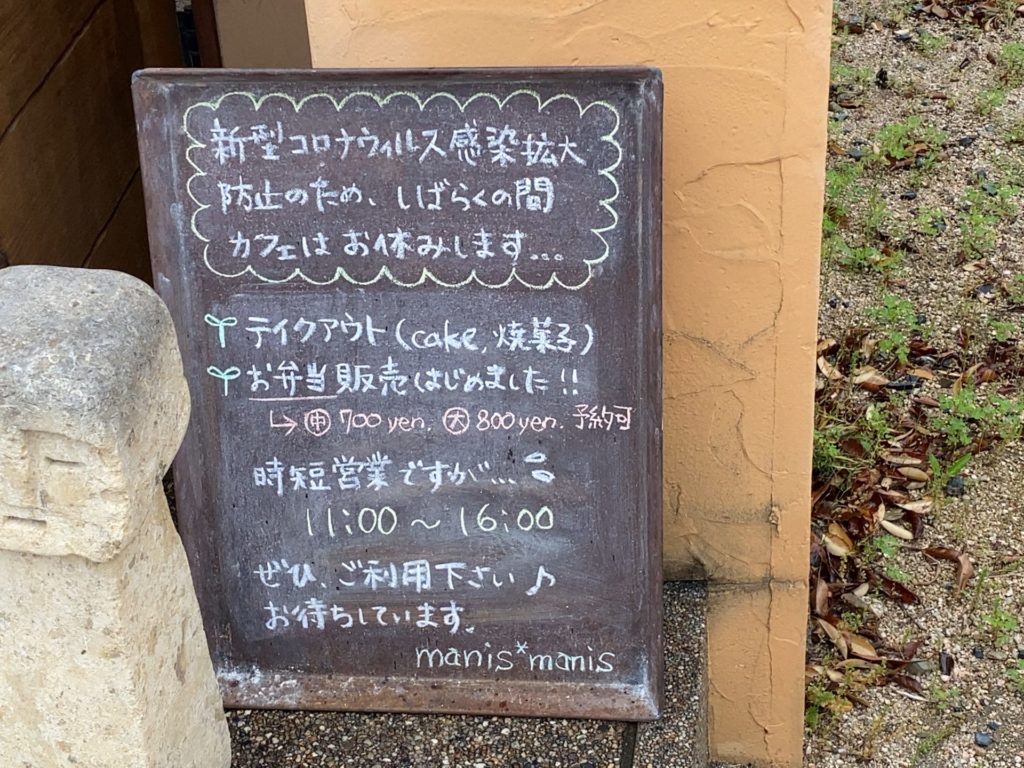 新型コロナウィルス感染拡大
防止のため、しばらくの間
カフェはお休みします...
テイクアウト(cake,焼菓子)
お弁当販売はじめました!!
→ 中 700 yen. 大 800 yen. 予約可
時短営業ですが...
11:00~16:00
ぜひ、ご利用下さい♪
お待ちしています。
manis*manis